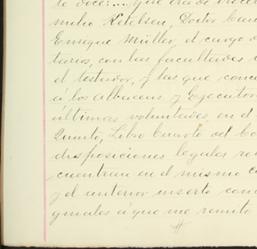 te doce:..., que era de
milio Ketelsen, Doctor
Enrique Müller, el cargo
tarios, con las facultades
el testador, y las que
á los albaceas y Ejecutor
últimas voluntades en el
Quinto, Libro Cuarto del
disposiciones legales
cuentran en el mismo
y el anterior inserto
ginales á que me remito